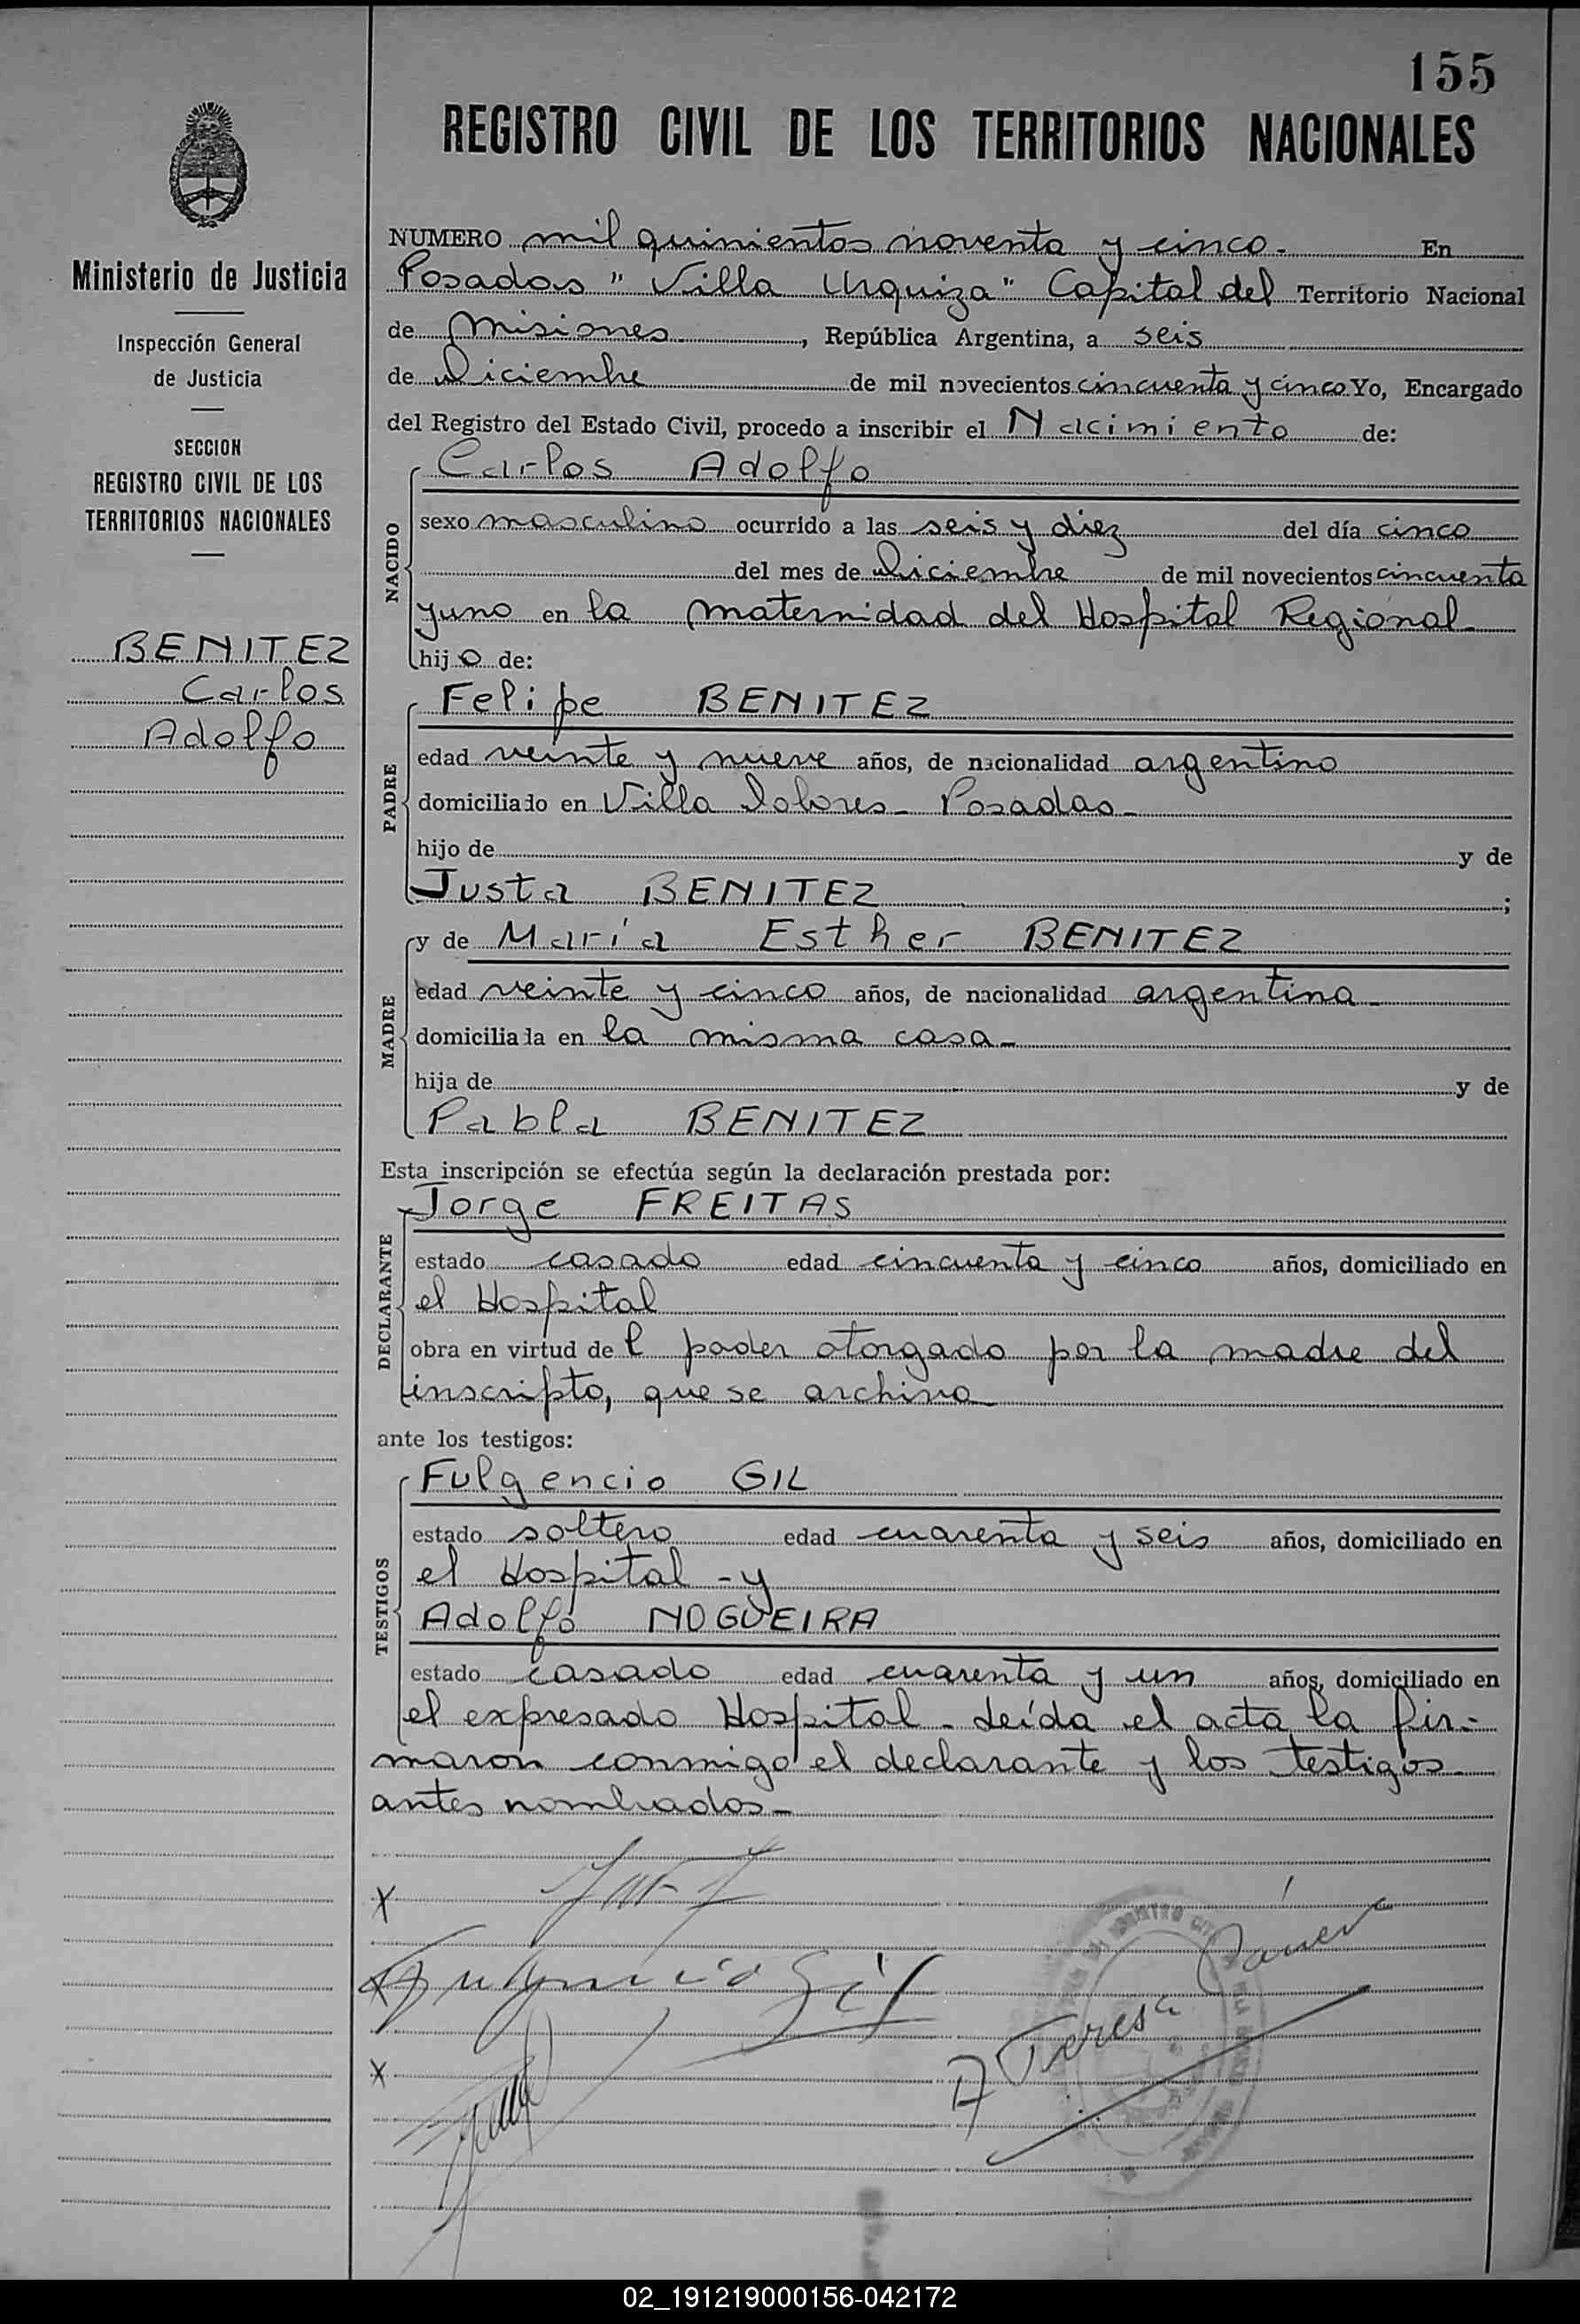 155
REGISTRO CIVIL DE LOS TERRITORIOS NACIONALES
Ministerio de Justicia
Inspección General
de Justicia
SECCION
REGISTRO CIVIL DE LOS
TERRITORIOS NACIONALES
BENITEZ
Carlos
Adolfo
NUMERO mil quinientos noventa y cinco - En
Posadas "Villa Urquiza" Capital del Territorio Nacional
de Misiones, República Argentina, a seis
de Diciembre de mil novecientos cincuenta y cinco Yo, Encargado
del Registro del Estado Civil, procedo a inscribir el Nacimiento de:
NACIDO
Carlos Adolfo
sexo masculino ocurrido a las seis y diez del día cinco
del mes de Diciembre de mil novecientos cincuenta
y uno en la maternidad del Hospital Regional -
hijo de:
PADRE
Felipe BENITEZ
edad veinte y nueve años, de nacionalidad argentino
domiciliado en Villa Dolores - Posadas -
hijo de y de
Justa BENITEZ ;
MADRE
y de María Esther BENITEZ
edad veinte y cinco años, de nacionalidad argentina -
domiciliada en la misma casa -
hija de y de
Pabla BENITEZ
Esta inscripción se efectúa según la declaración prestada por:
DECLARANTE
Jorge FREITAS
estado casado edad cincuenta y cinco años, domiciliado en
el Hospital
obra en virtud del poder otorgado por la madre del
inscripto, que se archiva
ante los testigos:
TESTIGOS
Fulgencio GIL
estado soltero edad cuarenta y seis años, domiciliado en
el Hospital - y
Adolfo NOGUEIRA
estado casado edad cuarenta y un años, domiciliado en
el expresado Hospital - Leída el acta la fir-
maron conmigo el declarante y los testigos
antes nombrados -
x
Fulgencio Gil
x
A Teresa
02_191219000156-042172